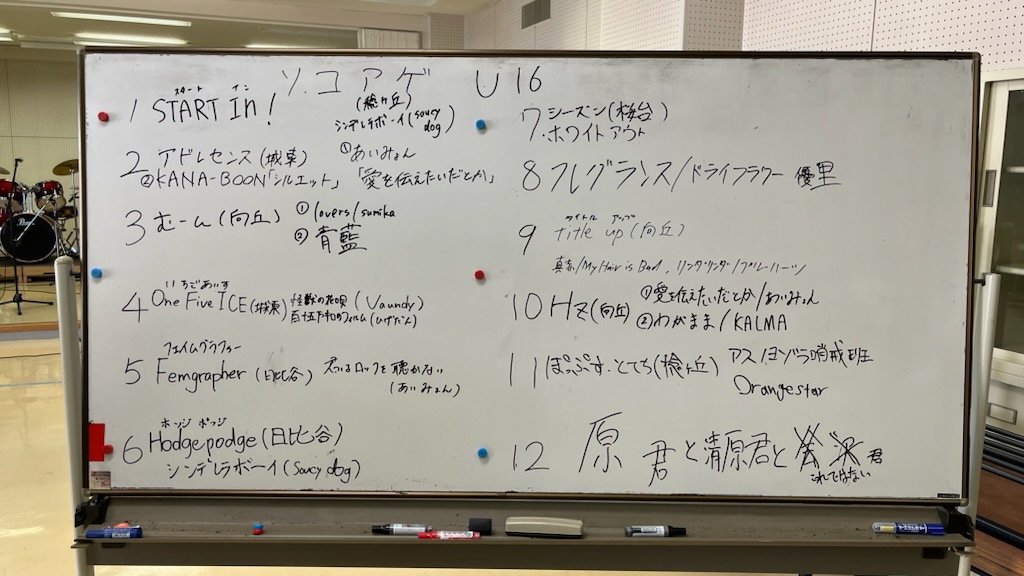 ソコアゲ U16
スタート イン
1 START In!
(桧ヶ丘)
シンデレラボーイ(saucy dog)
2 アドレセンス(城東) ①あいみょん
②KANA-BOON「シルエット」「愛を伝えたいだとか」
3 むーん(向丘) ①lovers/sumika
②青藍
いちごあいす
4 One Five ICE(城東) 怪獣の花唄(Vaundy)
百五十和のフィルム(ひげだん)
フェイムグラファー
5 Femgrapher (日比谷) 君はロックを聴かない
(あいみょん)
ホッジ ポッジ
6 Hodgepodge(日比谷)
シンデレラボーイ(saucy dog)
7 シーズン(桜台)
・ホワイトアウト
8 フレグランス/ドライフラワー 優里
タイトル アップ
9 title up(向丘)
真赤/My Hair is Bad. リンダリンダ/ブルーハーツ
10 Hz(向丘) ①愛を伝えたいだとか/あいみょん
②わがまま/KALMA
11 ぽっぷす・とてち(桧ヶ丘) アスノヨゾラ哨戒班
Orangestar
12 原君と清原君と 君
これではない